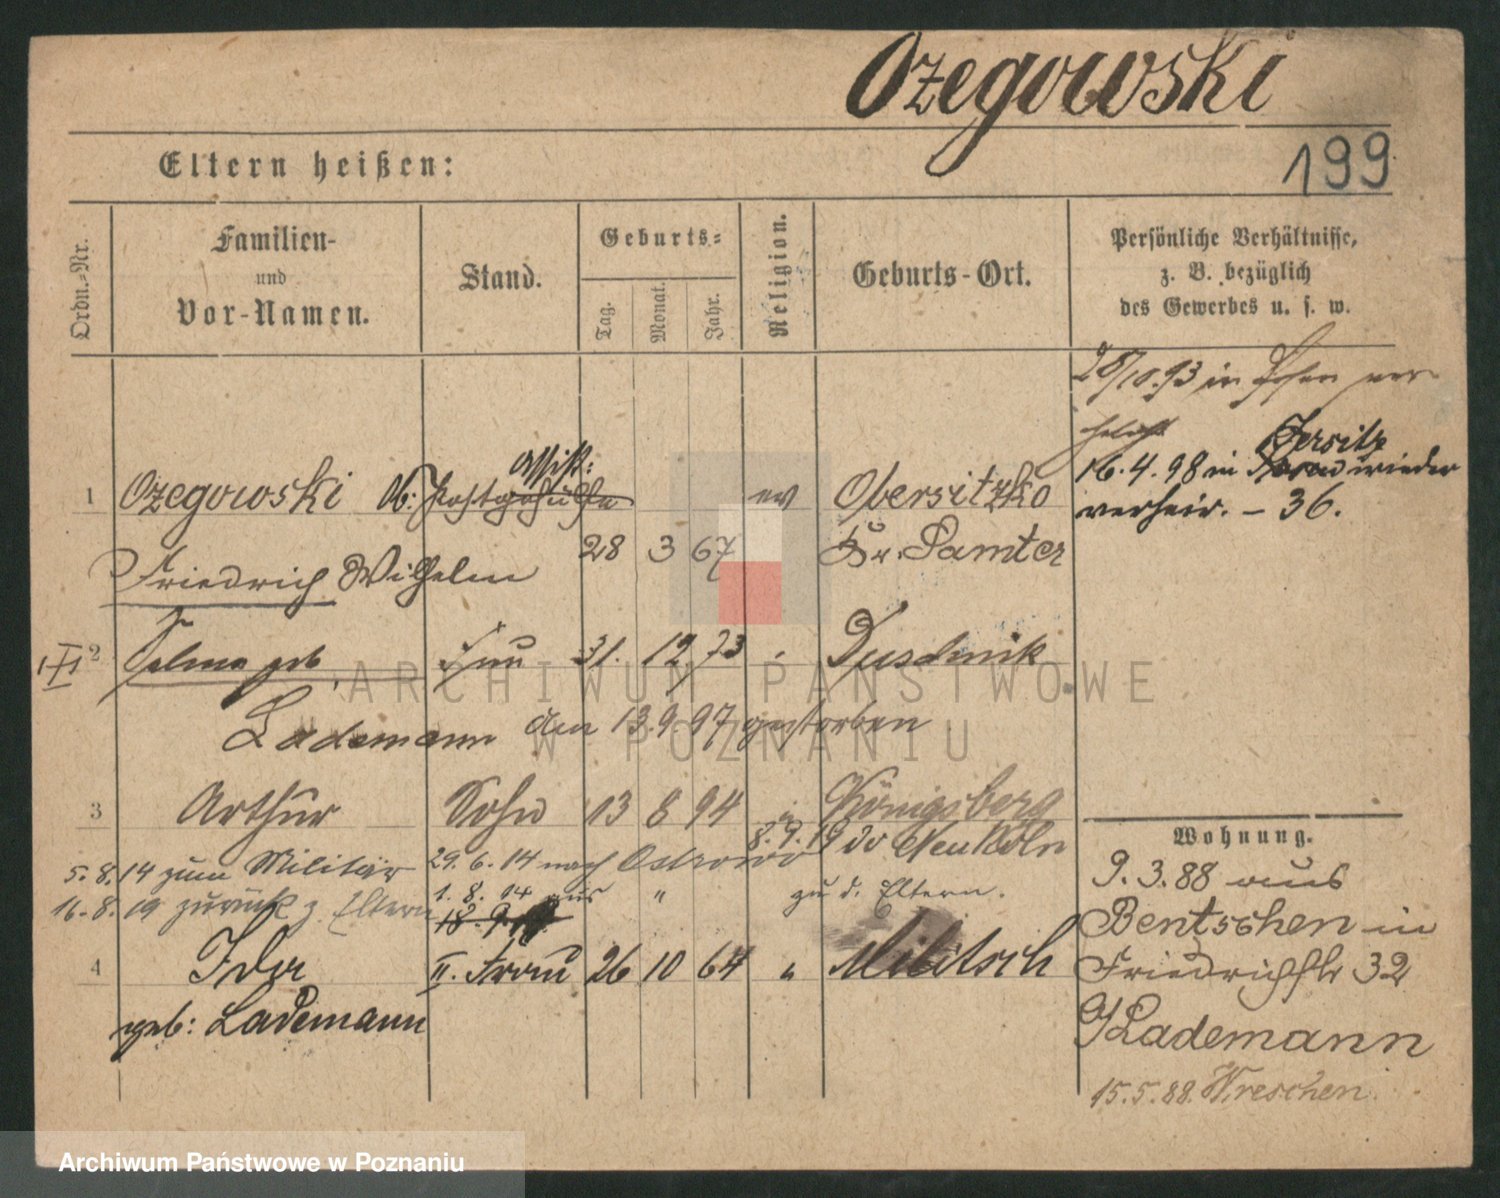 Ozegowski
199
Eltern heißen:
Ordn.-Nr.
Familien-
und
Vor-Namen.
Stand.
Geburts-
Tag.
Monat.
Jahr.
Religion.
Geburts-Ort.
Persönliche Verhältnisse,
z. B. bezüglich
des Gewerbes u. s. w.
28/10.93 in Posen ver-
helicht
16.4.98 in Jersitz wieder
verheir. - 36.
1 Ozegowski Ob: Postgehülfe Assist: 28 3 67 ev Obersitzko
Friedrich Wilhelm Kr. Samter
2 Selma geb. Frau 31. 12 73 Duschnik
Lademann den 13.9.97 gestorben
3 Arthur Sohn 13 8 94 " Königsberg
8.9.19 do Neukölln
5.8.14 zum Militär 29.6.14 nach Ostrowo
16.8.19 zurück z. Eltern 1.8.14 aus " zu d. Eltern.
4 Ida II. Frau 26 10 64 " Militsch
geb: Lademann
Wohnung.
9.3.88 aus
Bentschen in
Friedrichstr 32
b/Lademann
15.5.88. Wreschen.
ARCHIWUM PAŃSTWOWE
W POZNANIU
Archiwum Państwowe w Poznaniu